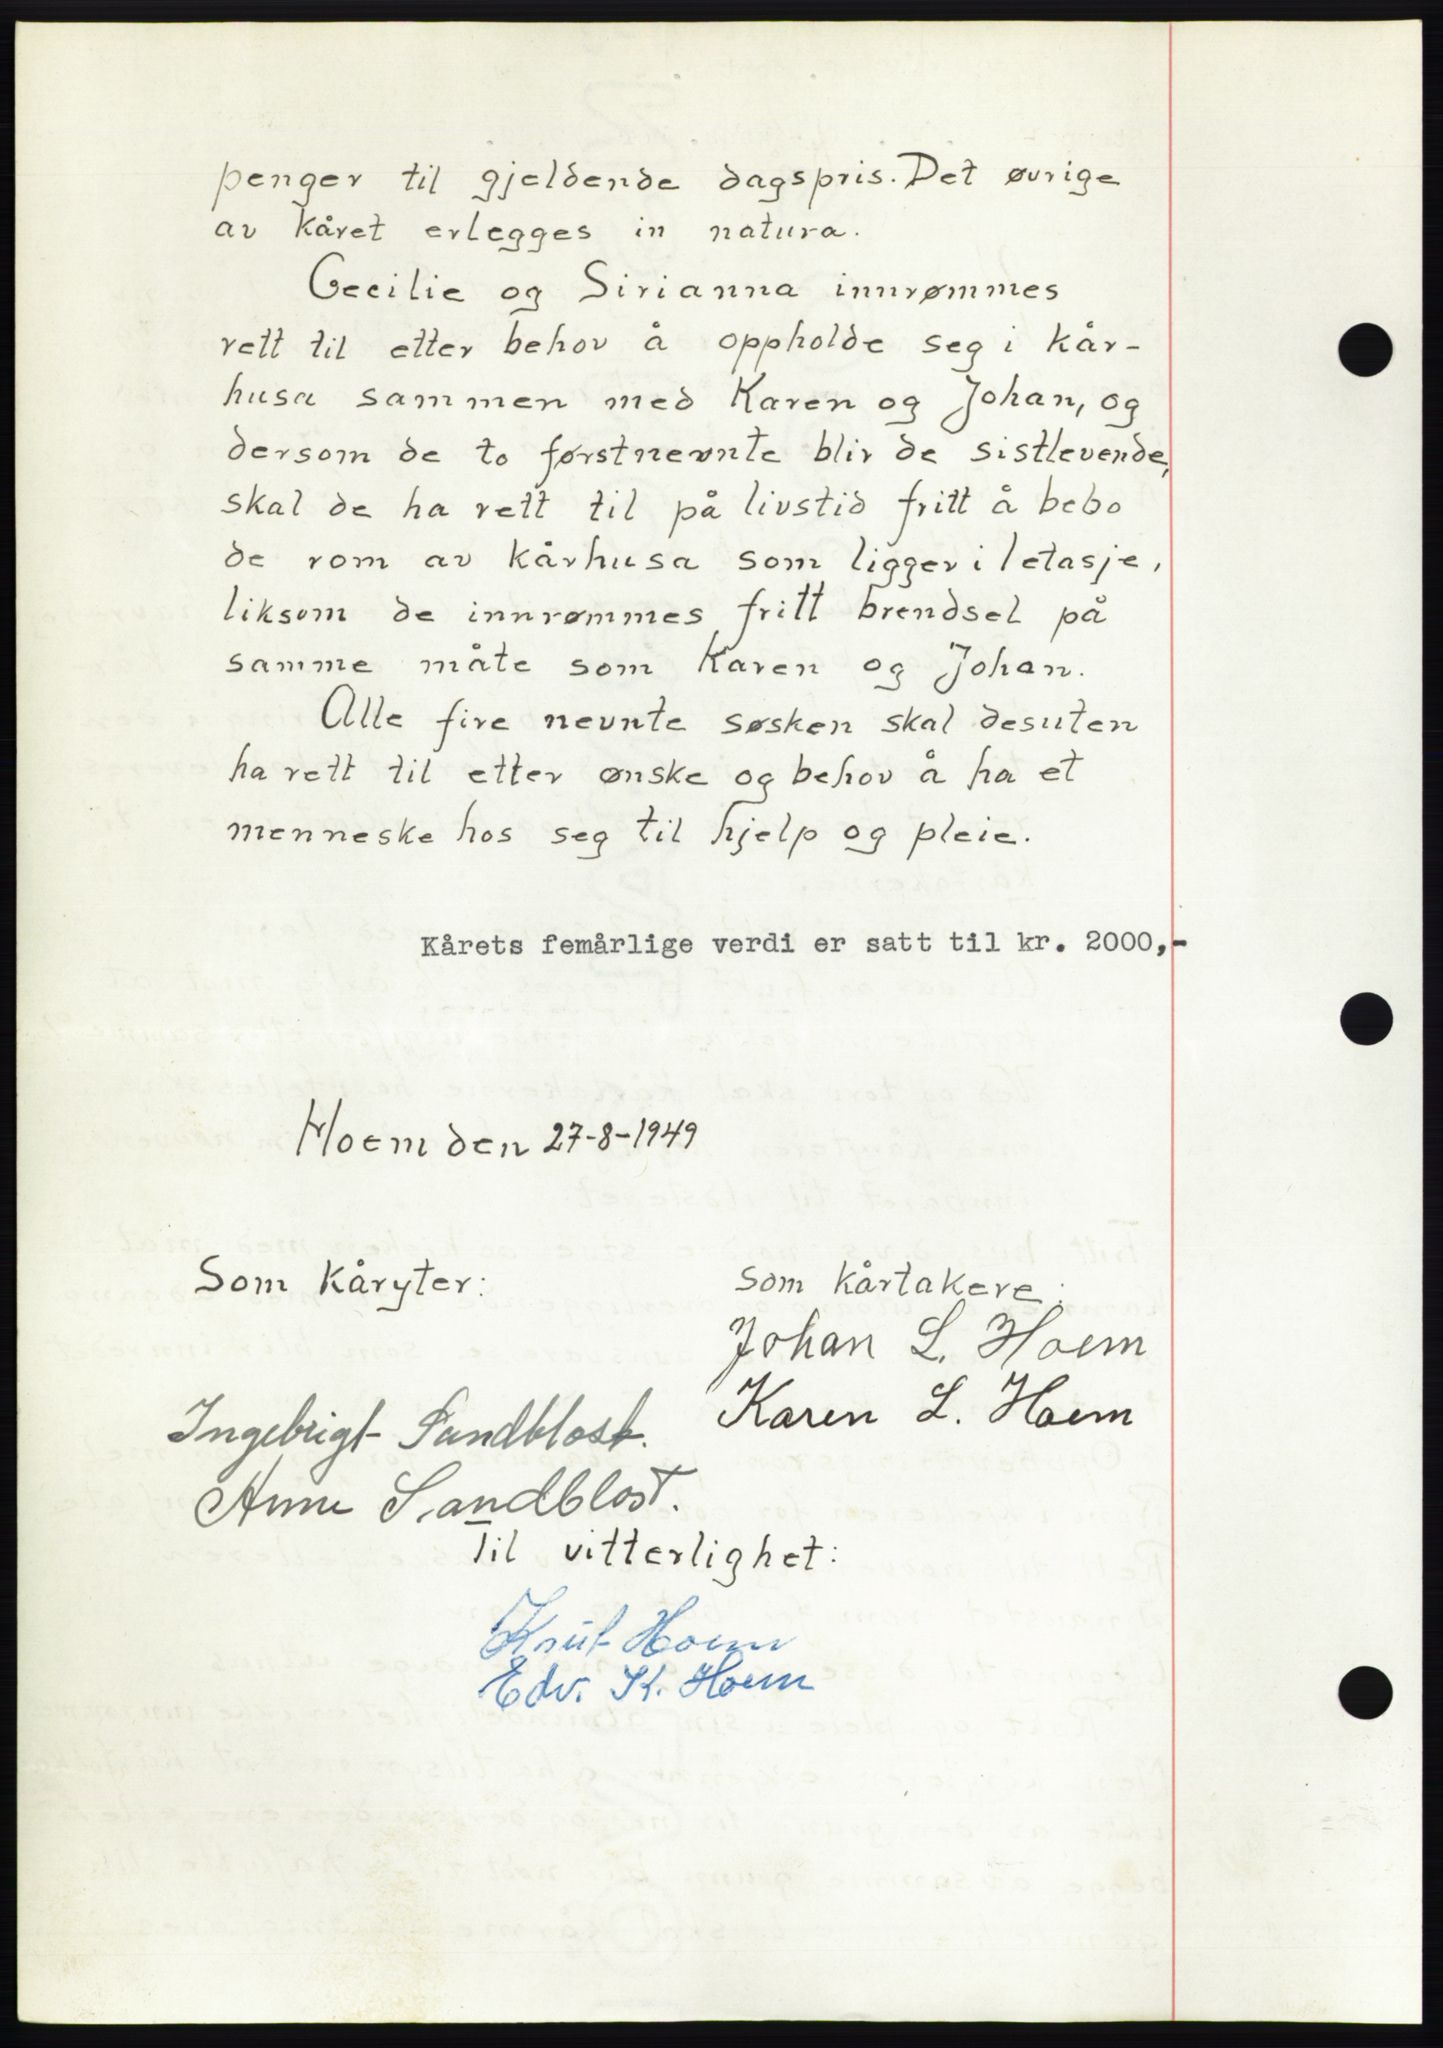 penger til gjeldende dagspris. Det øvrige
av kåret erlegges in natura.
Cecilie og Sirianna innrømmes
rett til etter behov å oppholde seg i kår-
husa sammen med Karen og Johan, og
dersom de to førstnevnte blir de sistlevende,
skal de ha rett til på livstid fritt å bebo
de rom av kårhusa som ligger i 1 etasje,
liksom de innrømmes fritt brendsel på
samme måte som Karen og Johan.
Alle fire nevnte søsken skal desuten
ha rett til etter ønske og behov å ha et
menneske hos seg til hjelp og pleie.
Kårets femårlige verdi er satt til kr. 2000,-
Hoem den 27-8-1949
Som kåryter:
Ingebrigt Sandblost.
Anne Sandblost.
Som kårtakere:
Johan L. Hoem
Karen L. Hoem
Til vitterlighet:
Knut Hoem
Edv. K. Hoem